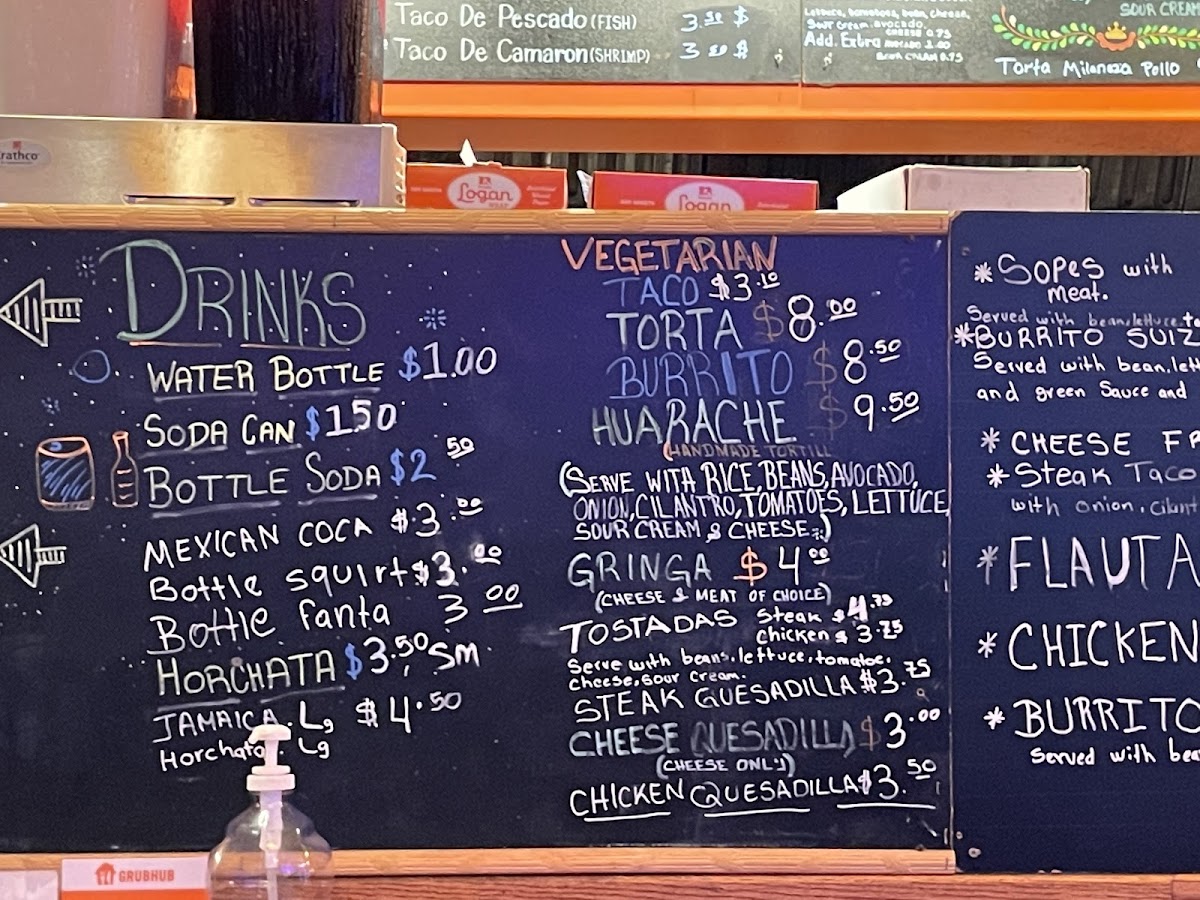 Taco De Pescado (FISH) 3.50 $
Taco De Camaron (SHRIMP) 3 50 $
Lettuce, tomatoes, bean, cheese,
Sour cream, avocado,
CHEESE 0.75
Add. Extra AVOCADO 1.00
SOUR CREAM 0.75
SOUR CREAM
Torta Milaneza Pollo
rathco
Logan
WRAP
Logan
DRINKS
WATER BOTTLE $1.00
SODA CAN $150
BOTTLE SODA $2 50
MEXICAN COCA $3.00
Bottle squirt $3.00
Bottle fanta 3 00
HORCHATA $3.50 SM
JAMAICA. Lg $4.50
Horchata. Lg
VEGETARIAN
TACO $3.10
TORTA $8.00
BURRITO $8.50
HUARACHE $9.50
(HANDMADE TORTILL
(SERVE WITH RICE, BEANS, AVOCADO,
ONION, CILANTRO, TOMATOES, LETTUCE,
SOUR CREAM & CHEESE;)
GRINGA $4 00
(CHEESE & MEAT OF CHOICE)
TOSTADAS Steak $4.75
chicken $ 3.75
Serve with beans, lettuce, tomatoe,
cheese, sour cream.
STEAK QUESADILLA $3.75
CHEESE QUESADILLA $3.00
(CHEESE ONLY)
CHICKEN QUESADILLA $3.50
* SOPES with
meat.
Served with bean, lettuce, to
*BURRITO SUIZ
Served with bean, lett
and green Sauce and
* CHEESE FR
* Steak Taco
with onion, cilant
* FLAUTA
* CHICKEN
* BURRITO
Served with bea
GRUBHUB